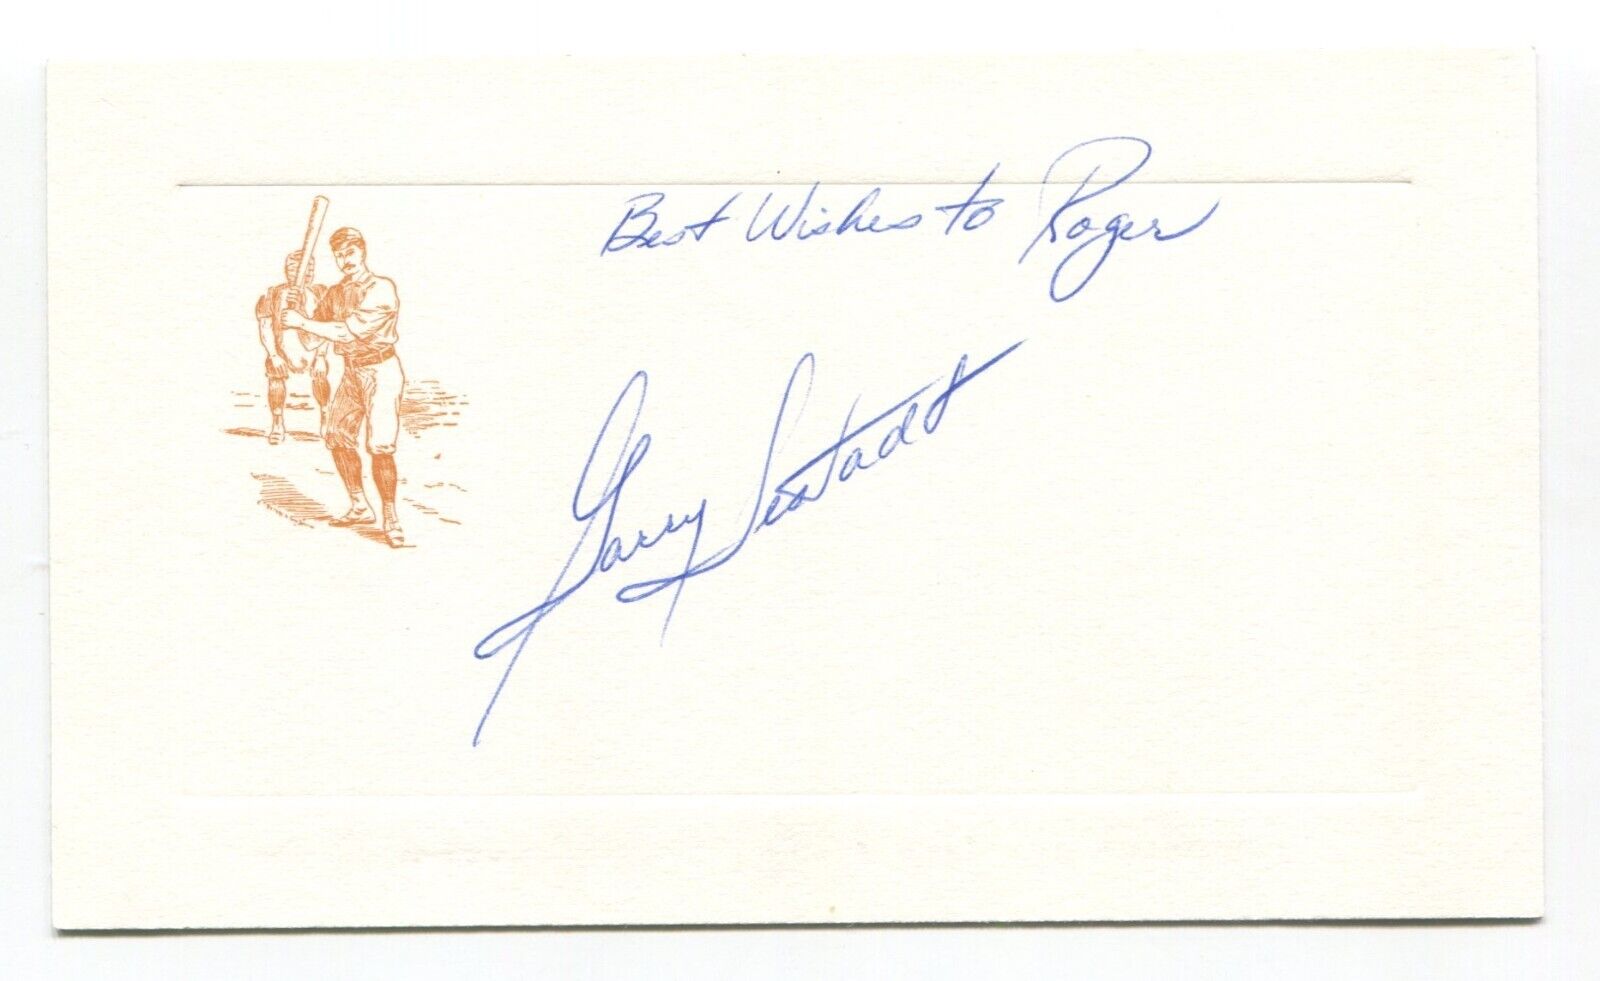 Best Wishes to Roger
Garry Jestadt